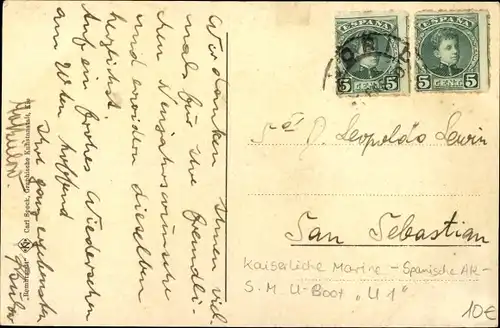 Wir danken Ihnen viel-
mals für Ihre freundli-
chen Neujahrswünsche
und erwidern dieselben
herzlichst.
Auf ein frohes Wiedersehen
am Uten hoffend
Ihr ganz ergebenster
Carl Speck, Graphische Kunstanstalt, Kiel
ESPAÑA
5 CENT. 5
ESPAÑA
5 CENT. 5
Sr. D. Leopoldo Lewin
San Sebastian
Kaiserliche Marine - Spanische AK -
S. M U-Boot "U 1"
10€